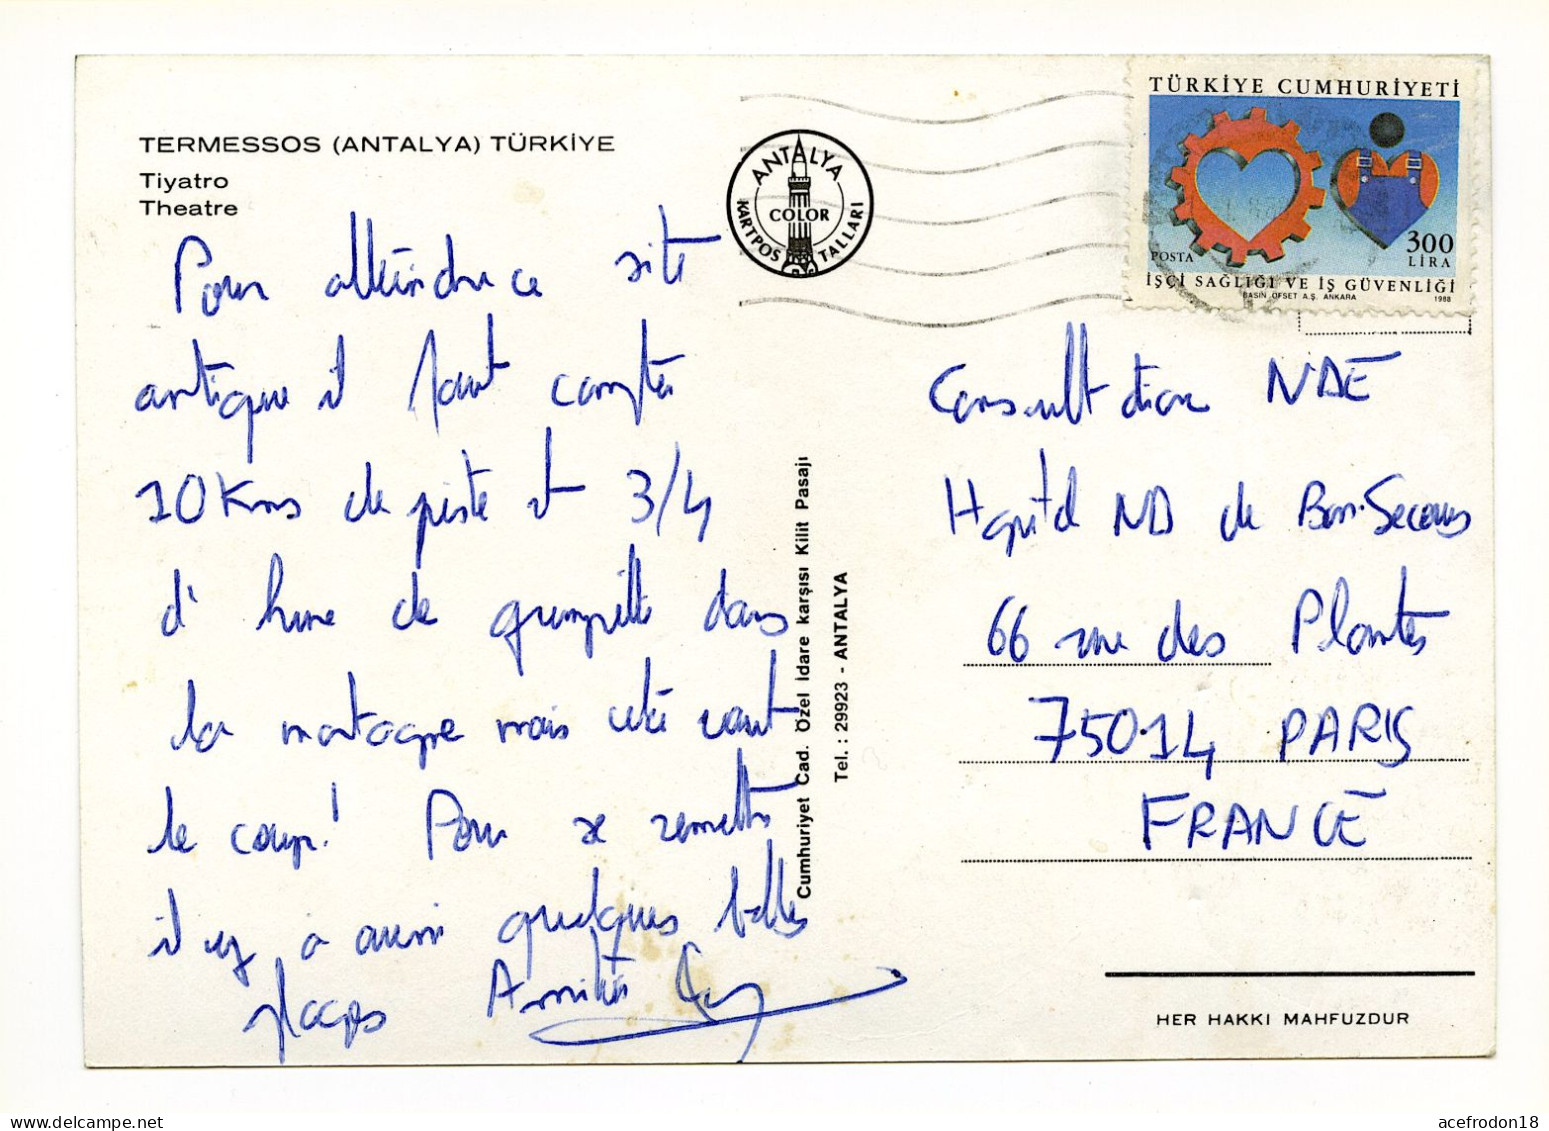 TERMESSOS (ANTALYA) TÜRKİYE
Tiyatro
Theatre
Pour atteindre ce site
antique il faut compter
10 Kms de piste et 3/4
d'heure de grimpette dans
la montagne mais cela vaut
le coup! Pour se remettre
il y a aussi quelques belles
plages Amitiés
ANTALYA
COLOR
KARTPOSTALLARI
Cumhuriyet Cad. Özel İdare karşısı Kilit Pasajı
Tel. : 29923 - ANTALYA
TÜRKİYE CUMHURİYETİ
300
LİRA
POSTA
İŞÇİ SAĞLIĞI VE İŞ GÜVENLİĞİ
BASIN OFSET A.Ş. ANKARA 1988
Consultation NDE
Hopital ND de Bon-Secours
66 rue des Plantes
75014 PARIS
FRANCE
HER HAKKI MAHFUZDUR
acefrodon18